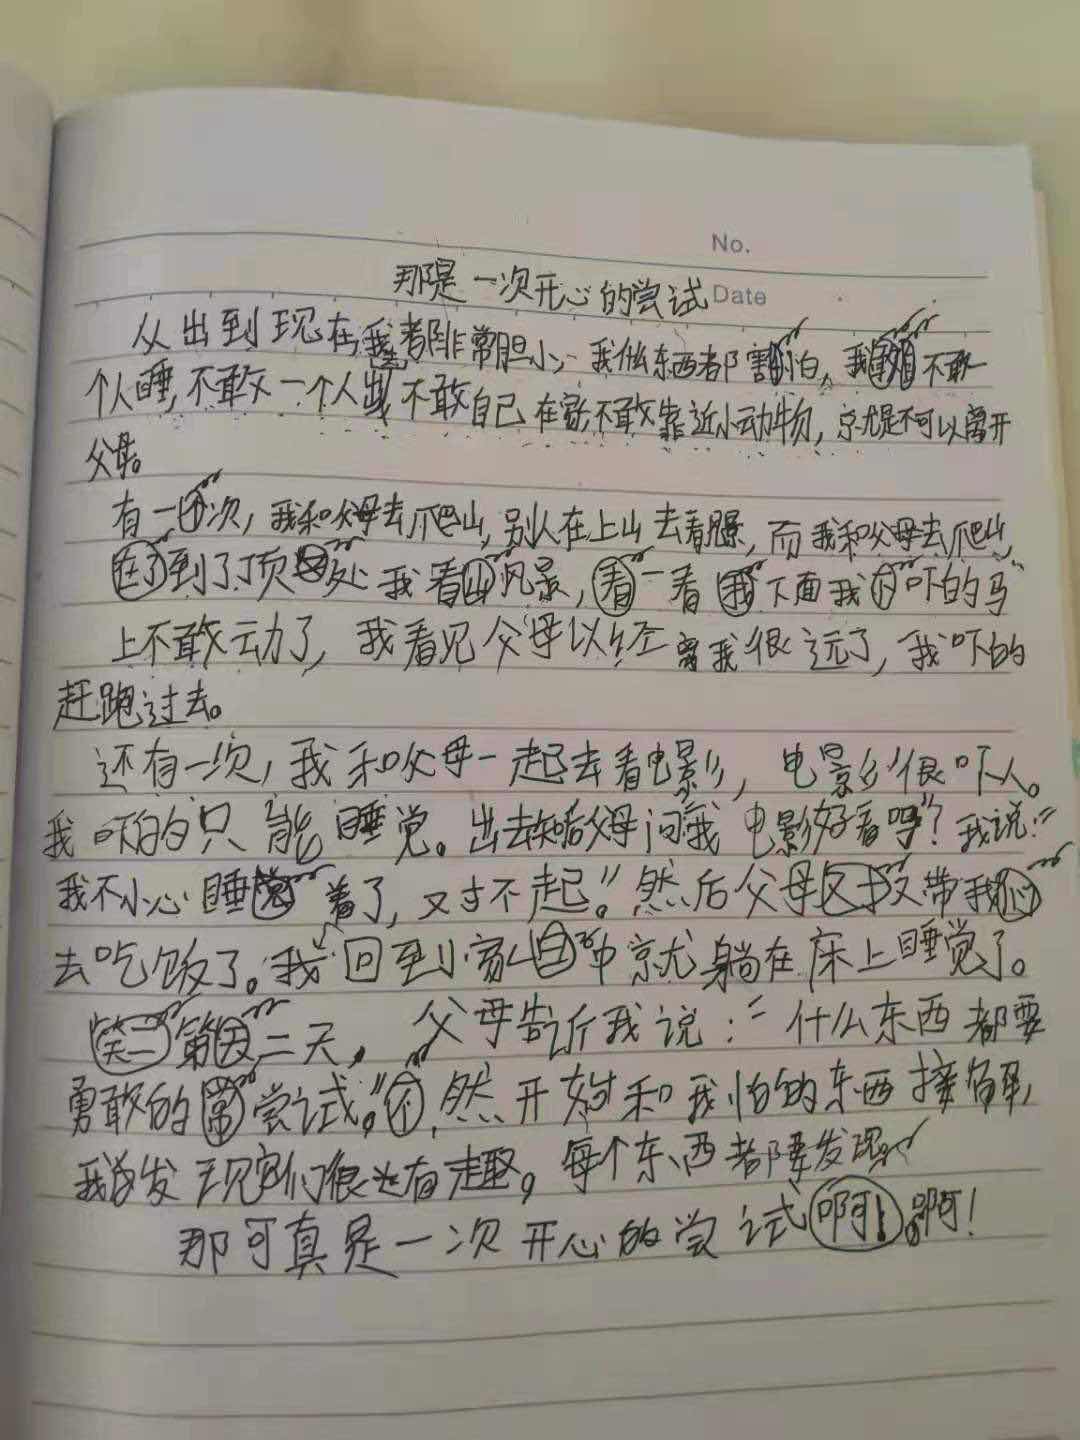 No.
那是一次开心的尝试 Date
从出到现在,我都非常胆小,我什么东西都害怕。我不敢一
个人睡,不敢一个人出不敢自己在家,不敢靠近小动物,京尤是不可以离开
父母。
有一次,我和父母去爬山,别人在上山去看风景,而我和父母去爬山,
到了顶处我看风景,看一看下面我吓的马
上不敢云动了,我看见父母以经离我很远了,我吓的
赶跑过去。
还有一次,我和父母一起去看电影,电影很吓人。
我吓的只能睡觉。出去后父母问我电影好看吗"?我说:"
我不小心睡着了,对不起。"然后父母又带我
去吃饭了。我回到家中京尤躺在床上睡觉了。
第二天,父母告诉我说:"什么东西都要
勇敢的尝试。"然开始和我怕的东西接解,
我发现它们很也有趣。每个东西都要发现。
那可真是一次开心的尝试啊!